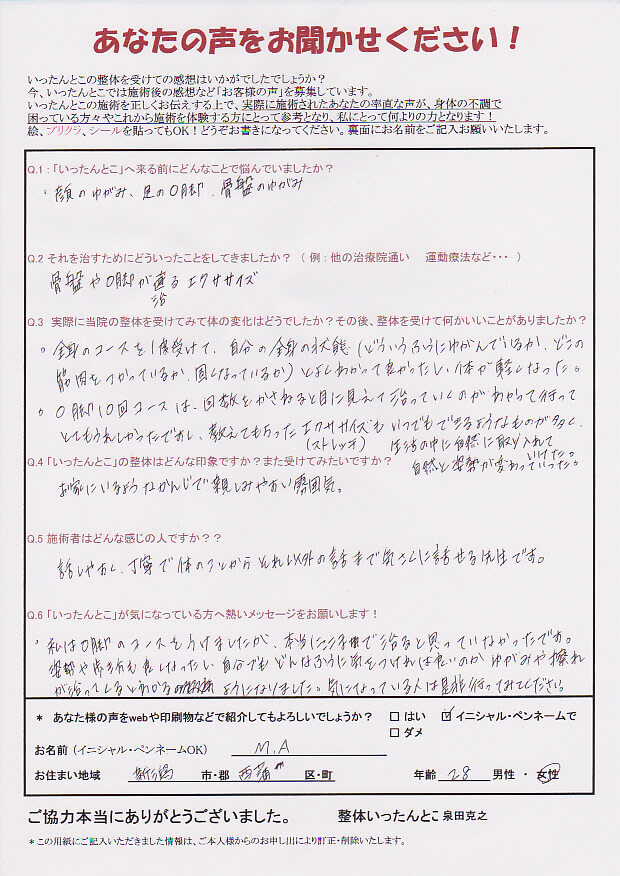 あなたの声をお聞かせください！
いったんとこの整体を受けての感想はいかがでしたでしょうか？
今、いったんとこでは施術後の感想など「お客様の声」を募集しています。
いったんとこの施術を正しくお伝えする上で、実際に施術されたあなたの率直な声が、身体の不調で
困っている方々やこれから施術を体験する方にとって参考となり、私にとって何よりの力となります！
絵、プリクラ、シールを貼ってもOK！どうぞお書きになってください。裏面にお名前をご記入お願いいたします。
Q.1：「いったんとこ」へ来る前にどんなことで悩んでいましたか？
・顔のゆがみ、足のO脚、骨盤のゆがみ
Q.2 それを治すためにどういったことをしてきましたか？（例：他の治療院通い　運動療法など・・・）
骨盤やO脚が直るエクササイズ
治
Q.3 実際に当院の整体を受けてみて体の変化はどうでしたか？その後、整体を受けて何かいいことがありましたか？
○ 全身のコースを1度受けて、自分の全身の状態（どういうふうにゆがんでいるか、どこの
筋肉をつかっているか、固くなっているか）とよくわかって良かったし、体が軽くなった。
○ O脚10回コースは、回数をかさねると目に見えて治っていくのがわかって行って
とてもうれしかったですし、教えてもらったエクササイズもいつでもできるようなものが多く、
（ストレッチ）生活の中に自然に取り入れて
いけた。
自然と姿勢が変わっていった。
Q.4 「いったんとこ」の整体はどんな印象ですか？また受けてみたいですか？
お家にいるようなかんじで親しみやすい雰囲気。
Q.5 施術者はどんな感じの人ですか？？
話しやすく、丁寧で体のことからそれ以外の話まで気さくに話せる先生です。
Q.6 「いったんとこ」が気になっている方へ熱いメッセージをお願いします！
・私はO脚のコースをうけましたが、本当にここまで治ると思っていなかったです。
姿勢や歩き方も良くなったし、自分でもどんなふうに気をつければ良いのか ゆがみや捻れ
が治ってくるとわかるようになりました。気になっている人は是非行ってみてください。
* あなた様の声をwebや印刷物などで紹介してもよろしいでしょうか？ □ はい ☑ イニシャル・ペンネームで
□ ダメ
お名前（イニシャル・ペンネームOK） M.A
お住まい地域 新潟 市・郡 西蒲 区・町 年齢 28 男性 ・ 女性
ご協力本当にありがとうございました。 整体いったんとこ 泉田克之
*この用紙にご記入いただきました情報は、ご本人様からのお申し出により訂正・削除いたします。